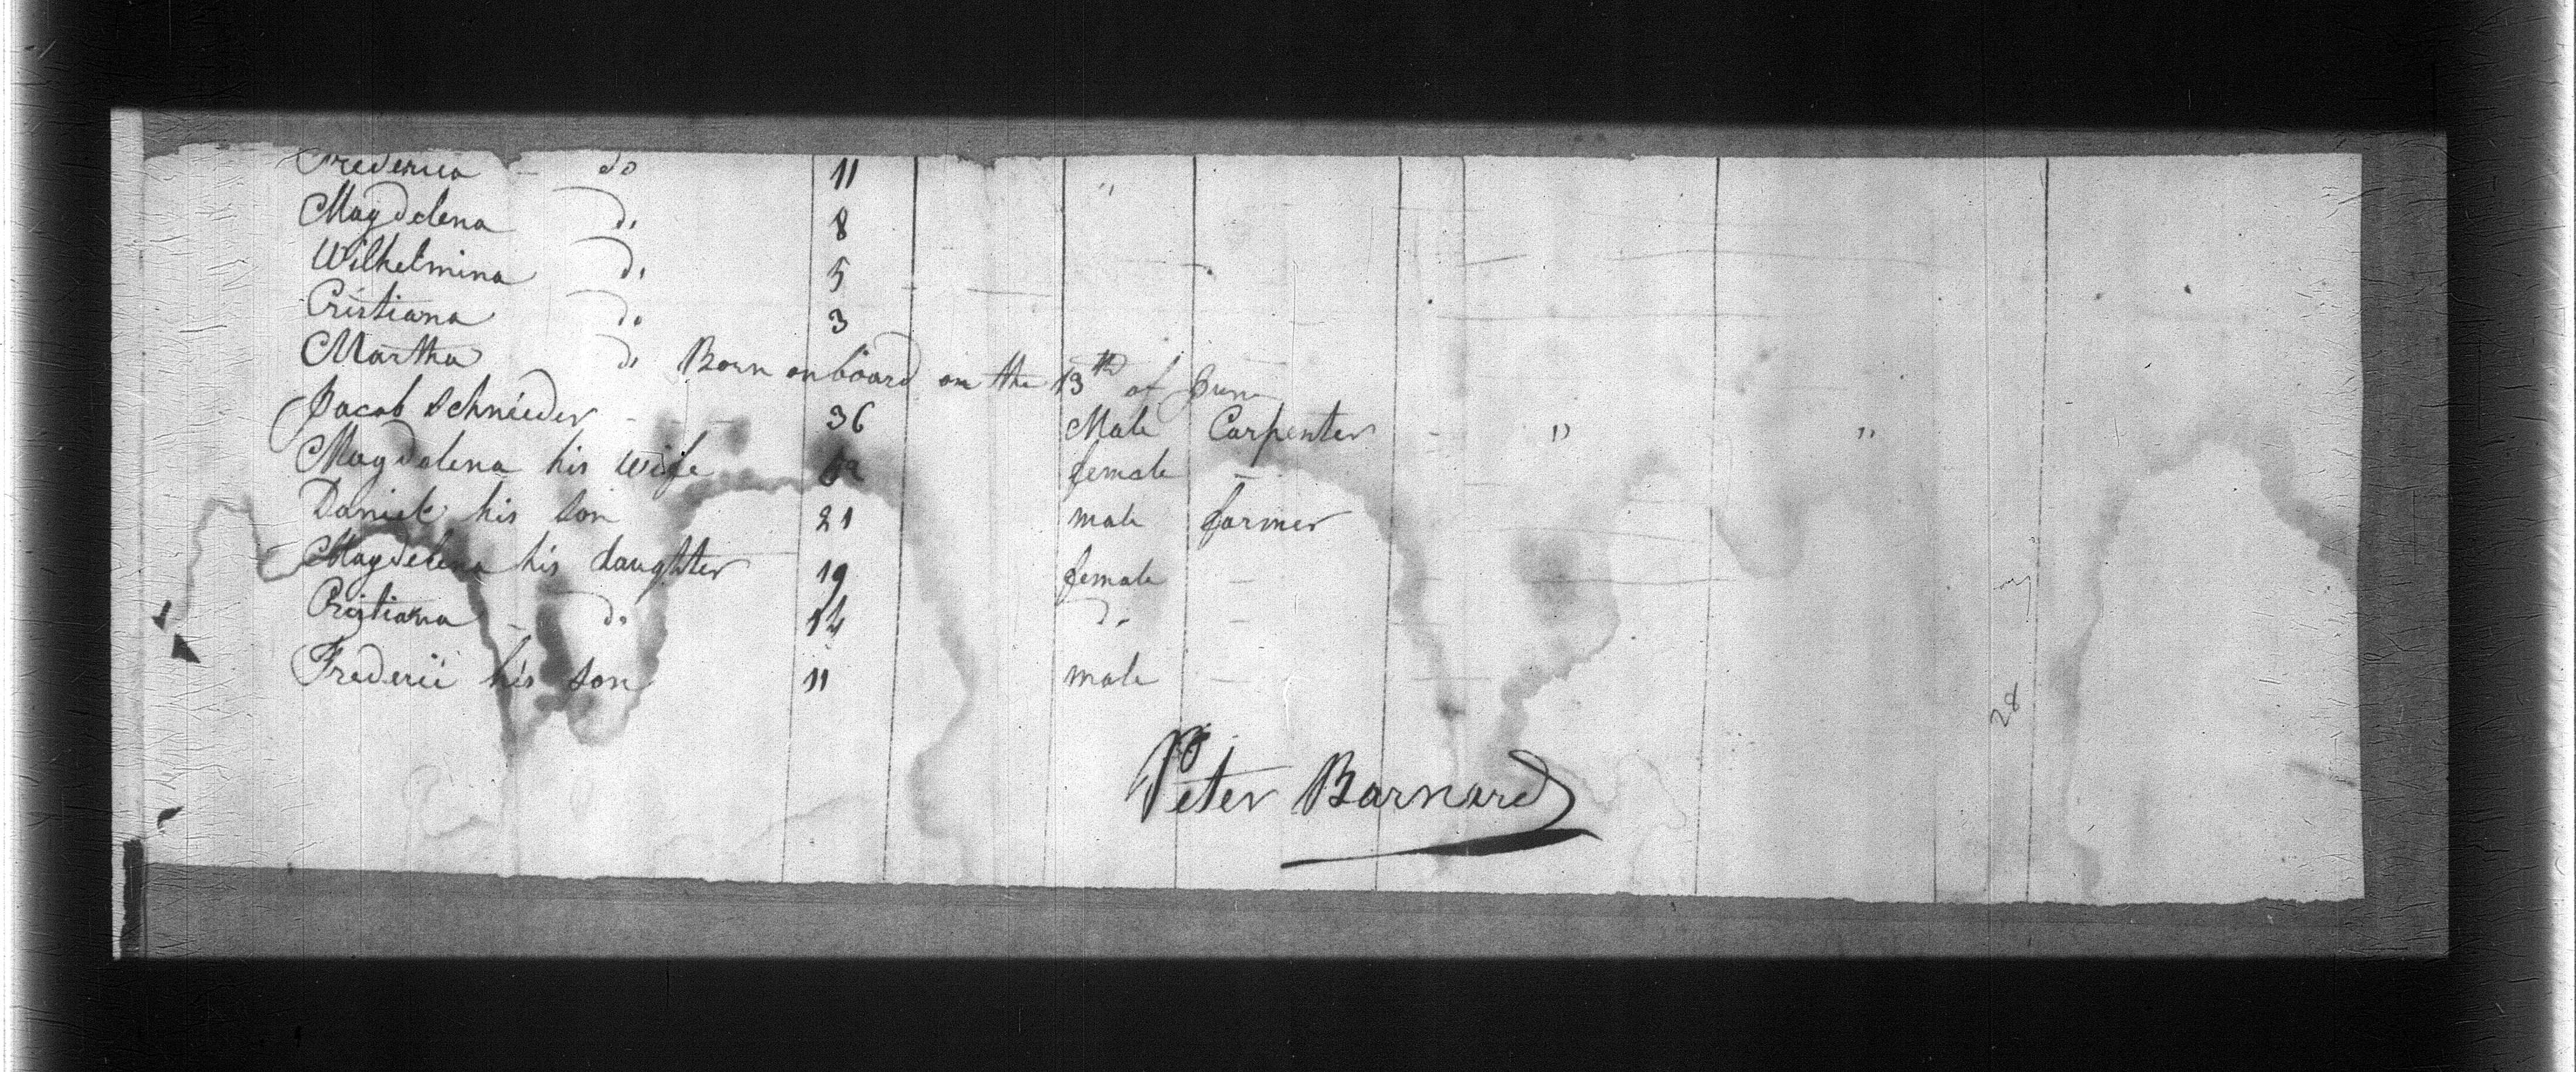 Frederica - do 11 "
Magdelena do 8
Wilhelmina do 5
Cristiana do 3
Martha do Born on board on the 13th of June
Jacob Schnieder - - - 36 Male Carpenter - " "
Magdelena his wife female -
Daniel his son 21 male farmer
Magdelena his daughter 19 female -
Cristiana - do 14 do -
Frederic his son 11 male -
28
Peter Barnard